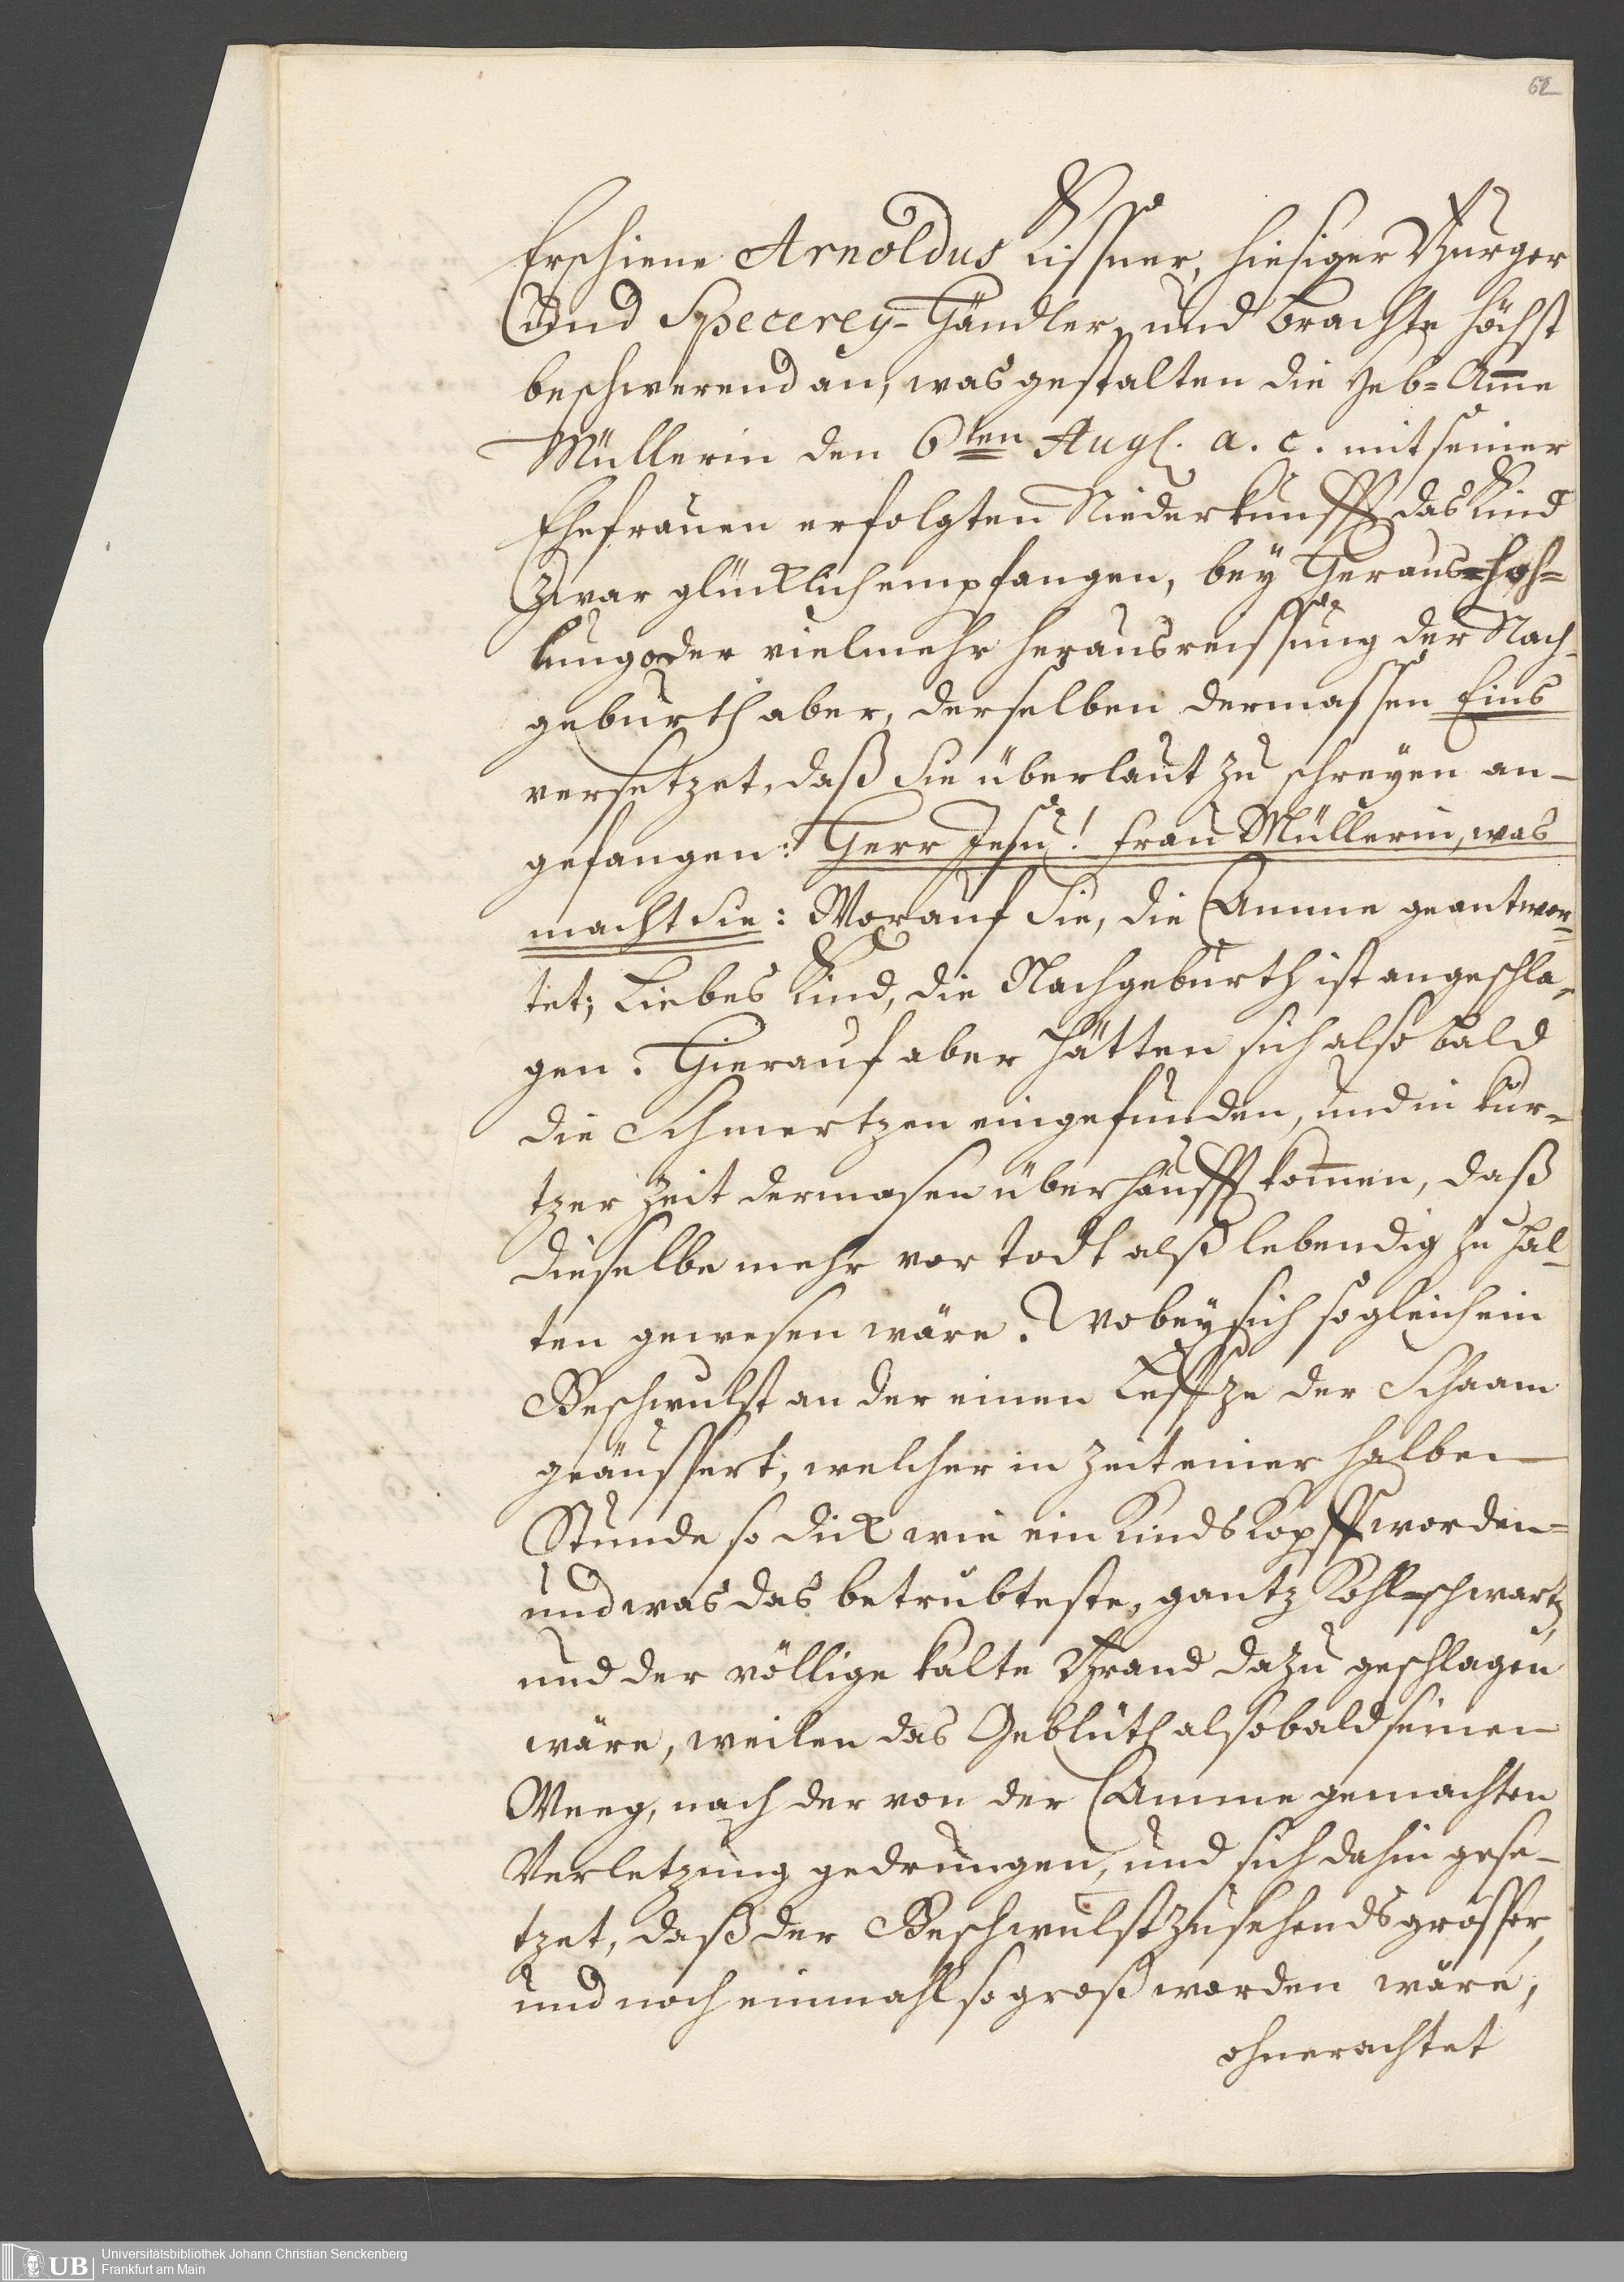 62
Erschiene Arnoldus Kissner, hiesiger Burger
und Specerey-Händler, und brachte höchst
beschwerend an, was gestalten die Heb-Am̅e
Müllerin den 6ten Aug. a. c. mit seiner
Ehefrauen erfolgten Niederkunfft das Kind
zwar glücklich empfangen, bey Heraus-hoh-
lung oder vielmehr herausreissung der Nach-
geburth aber, derselben dermassen Eins
versetzet, daß Sie überlaut zu schreyen an-
gefangen: Herr Jesu! Frau Müllerin, was
macht Sie: Worauf Sie, die Amme geantwor-
tet; Liebes Kind, die Nachgeburth ist angeschla-
gen. Hierauf aber hätten sich also bald
die Schmertzen eingefunden, und in kur-
tzer Zeit dermasen überhäufft kom̅en, daß
dieselbe mehr vor todt alß lebendig zu hal-
ten gewesen wäre. Wobey sich sogleich ein
Geschwulst an der einen Leffze der Schaam
geäussert, welcher in Zeit einer halben
Stunde so dick wie ein Kindskopff worden
und was das betrübteste, gantz Kohl-schwartz,
und der völlige kalte Brand dazu geschlagen
wäre, weilen das Geblüth alsobald seinen
Weeg, nach der von der Amme gemachten
Verletzung gedrungen, und sich dahin gese-
tzet, daß der Geschwulst zusehends grösser,
und noch einmahl so groß worden wäre,
ohnerachtet
UB
Universitätsbibliothek Johann Christian Senckenberg
Frankfurt am Main